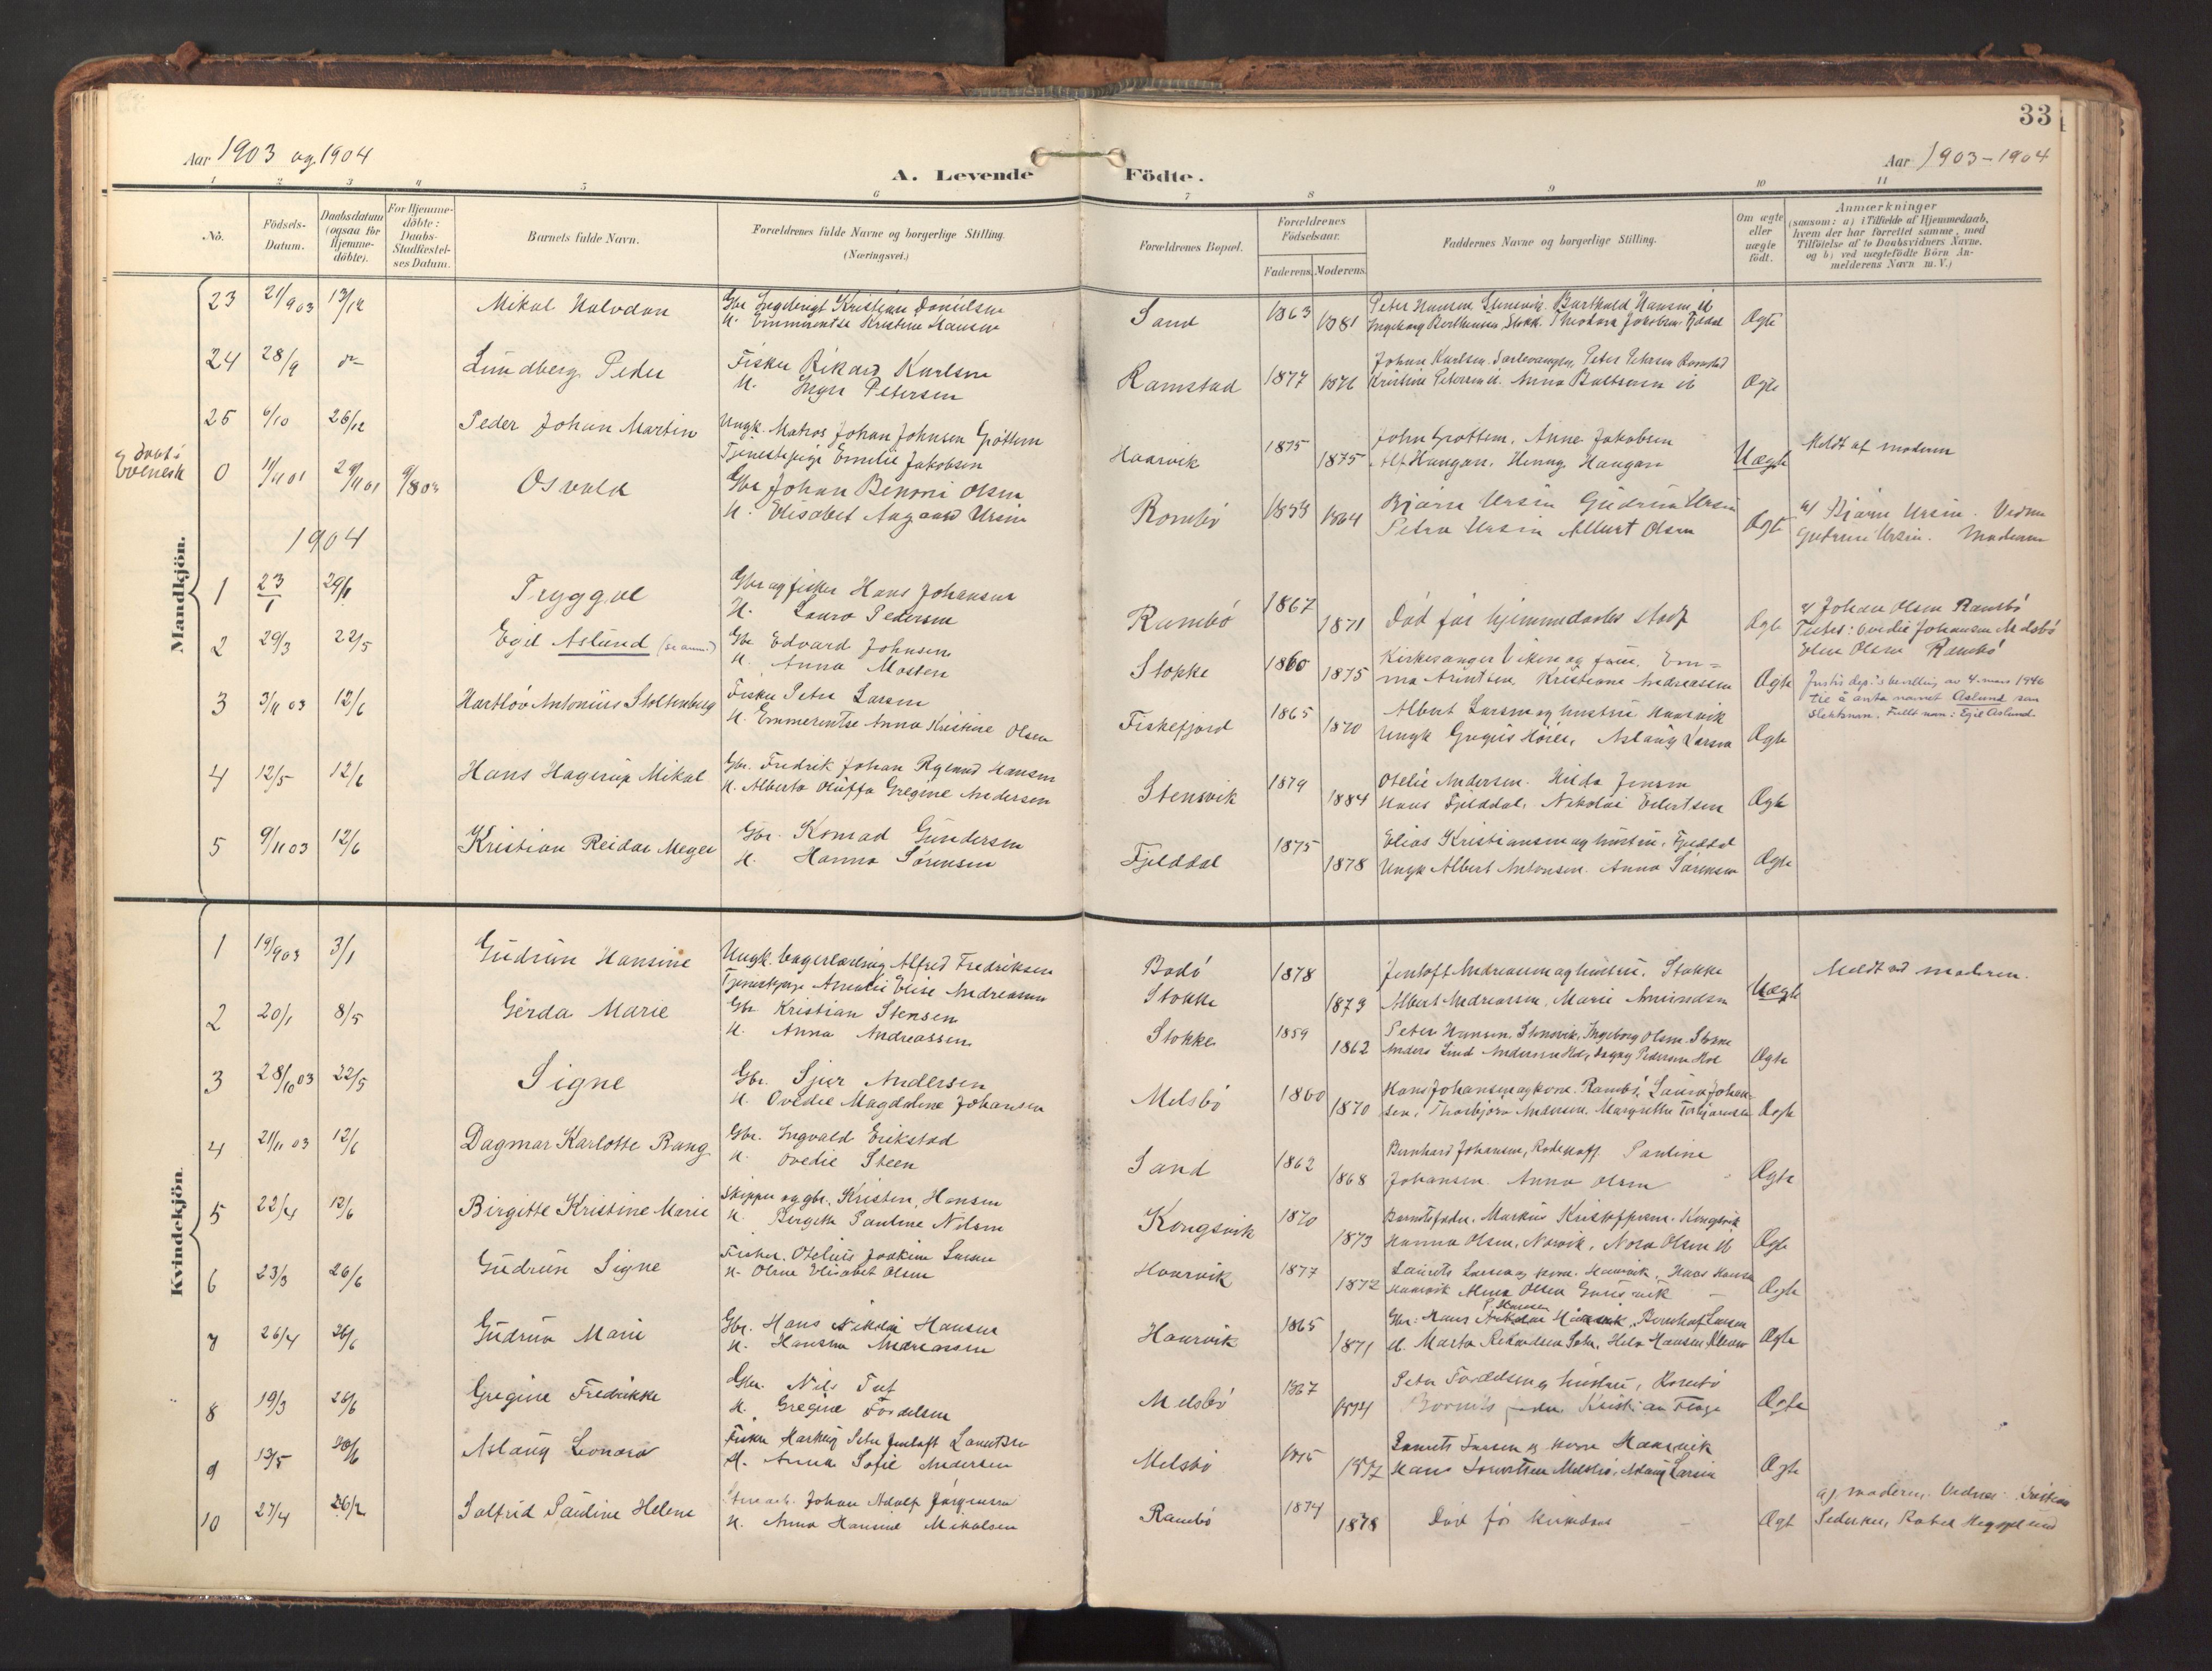 33
Aar 1903 og 1904
A. Levende Födte.
Aar 1903-1904
1 2 3 4 5 6 7 8 9 10 11
No.
Födsels-Datum.
Daabsdatum (ogsaa for Hjemme-döbte).
For Hjemme-döbte: Daabs-Stadfæstel-ses Datum.
Barnets fulde Navn.
Forældrenes fulde Navne og borgerlige Stilling.
(Næringsvei.)
Forældrenes Bopæl.
Forældrenes Födselsaar.
Faderens. Moderens.
Faddernes Navne og borgerlige Stilling.
Om ægte eller uægte födt.
Anmærkninger
(saasom: a) i Tilfælde af Hjemmedaab,
hvem der har forrettet samme, med
Tilföielse af to Daabsvidners Navne.
og b) ved uægtefödte Börn An-
melderens Navn m. V.)
Mandkjön.
23 21/9 03 13/12 Mikal Halvdan Gbr Ingebrigt Kristian Danielsen Sand 1863 Peter Hansen, Stensvik. Barthold Hansen ib
H. Emmerentse Kristine Hansen 1881 Ingeborg Bertheusen, Stokk. Theodora Jakobsen Ægte
24 28/9 Lundberg Peder Fisker Rikard Karlsen Ramstad 1877 Johan Karlsen. Peter Petersen Ramstad
H. Inger Petersen 1876 Kristine Petersen ib. Anna Baltsersen ib Ægte
25 6/10 26/12 Peder Johan Martin Ungk. Matros Johan Johnsen Gröttem Haarvik 1875 John Grottem, Anne Jakobsen Meldt af moderen
Tjenestepige Emelie Jakobsen 1875 Alf Haugan, Henrg. Haugan Uægte
Evenesk 0 1/11 01 29/11 01 9/8 03 Osvald Gbr Johan Benoni Olsen Rambö 1864 Bjarne Ursin Gudrun Ursin a) Bjarne Ursin.
H. Elisabet Aagaard Ursin Petra Ursin Albert Olsen Ægte Gudrun Ursin. Moderen
1904
1 23/1 Tryggve Gbr og fisker Hans Johansen Rambö 1867 Död för hjemmedaabs stadf a) Johan Olsen Rambö
H. Laura Pedersen 1871 Ægte Ovedie Johansen Melsbö
Elen Olsen Rambö
2 29/3 22/5 Egil Aslund Gbr Edvard Johnsen Stokke 1860 Kirkesanger Viken og frue. Em-
H. Anna Mosten 1875 ma Arntsen, Kristiane Andreassen Ægte Justis dep.'s bevilling av 4. mars 1946
til å anta navnet Aslund som
slektsnavn. Fullt navn: Egil Aslund
3 3/11 03 12/6 Hartlöv Antonius Stoltenberg Fisker Peter Larsen Fiskefjord 1865 Albert Larsen og hustru Haarvik
H. Emmerentse Anna Kristine Olsen 1870 Ungk Aslaug Larsen Ægte
4 12/5 12/6 Hans Hagerup Mikal Gbr. Fredrik Johan Hansen Stensvik 1879 Otelie Andersen. Hilda Jensen
H. Alberta Oluffa Gregine Andersen 1884 Hans Fjelddal, Nikolai Eilertsen Ægte
5 9/11 03 12/6 Kristian Reidar Meyer Gbr. Konrad Gundersen Fjelddal 1875 Elias Kristiansen og hustru, Fjelddal
H. Hanna Sörensen 1878 Ungk Albert Antonsen. Anna Sörensen Ægte
Kvindekjön.
1 19/9 03 3/1 Gudrun Hansine Ungk. bagerlærling Alfred Fredriksen Bodö 1878 Jentoft Andreassen og hustru. Stokke Meldt ved moderen.
Tjenestepige Amalie Elise Andreassen Stokke 1873 Albert Andreassen, Marie Amundsen Uægte
2 20/1 8/5 Gerda Marie Gbr Kristian Stensen Stokke 1859 Peter Hansen, Stensvik, Ingeborg Olsen Stokke
H. Anna Andreassen 1862 Anders Lind Pedersen Hol Ægte
3 28/10 03 22/5 Signe Gbr. Sjur Andersen Melsbö 1860 Hans Johansen og kone. Rambö, Laura Johan-
H. Ovedie Magdalene Johansen 1870 sen, Thorbjörn Andersen. Margrethe Torbjörnsen Ægte
4 21/11 03 12/6 Dagmar Karlotte Bang Gbr. Ingvald Erikstad Sand 1862 Bernhard Johansen, Pauline
H. Ovedie Steen 1868 Johansen. Anna Olsen Ægte
5 22/4 12/6 Birgitte Kristine Marie Skipper og gbr. Kristen Hansen Kongsvik 1870 Barnets fader, Markus Kristoffersen. Kongsvik
H. Birgitte Pauline Nilsen 1873 Hanna Olsen, Narvik, Nora Olsen ib Ægte
6 23/3 26/6 Gudrun Signe Fisker. Otelius Joakim Larsen Haarvik 1877 Laurits Larsen og kone. Haarvik, Hans Hansen
H. Oline Elisabet Olsen 1872 Haarvik Alma Olsen Ægte
7 26/4 26/6 Gudrun Marie Gbr. Hans Nikolai Hansen Haarvik 1865 Gbr. Hans P. Hansen Haarvik
H. Hansine Andreassen 1871 Marta Hansen Ægte
8 19/3 26/6 Gregine Fredrikke Gbr. Nils Melsbö 1867 Peter og hustru, Rambö
H. Gregine 1874 Barnets fader Kristian Ægte
9 13/5 Aslaug Leonora Fisker Peter Jentoft Melsbö Laurits Larsen og kone Haarvik
H. Anna Sofie Andersen Hans Melsbö, Aslaug Larsen Ægte
10 27/4 26/12 Salfrid Pauline Helene Johan Adolf Jörgensen Rambö 1874 Död för a) moderen. Kristian
H. Anna Hansine Mikalsen 1878 Ægt Pedersen,